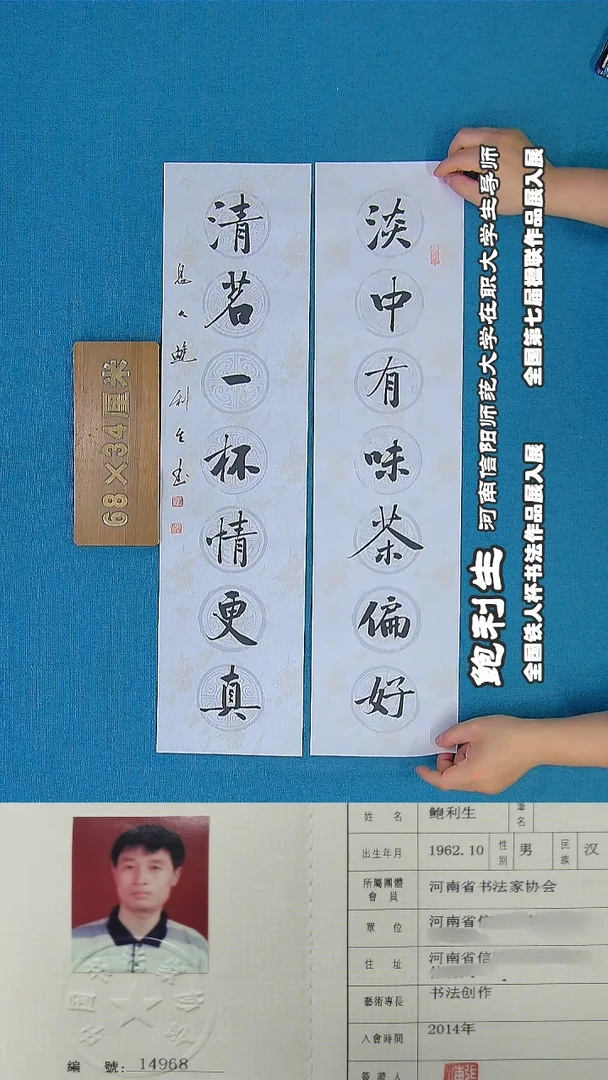 淡中有味茶偏好
清茗一杯情更真
鲍利生
68×34厘米
鲍利生 河南信阳师范大学在职大学生导师
全国铁人杯书法作品展入展 全国第七届楹联作品展入展
姓名 鲍利生 筆名
出生年月 1962.10 性別 男 民族 汉
所屬團體會員 河南省书法家协会
單位 河南省信
住址 河南省信
藝術專長 书法创作
入會時間 2014年
簽證人
編號: 14968